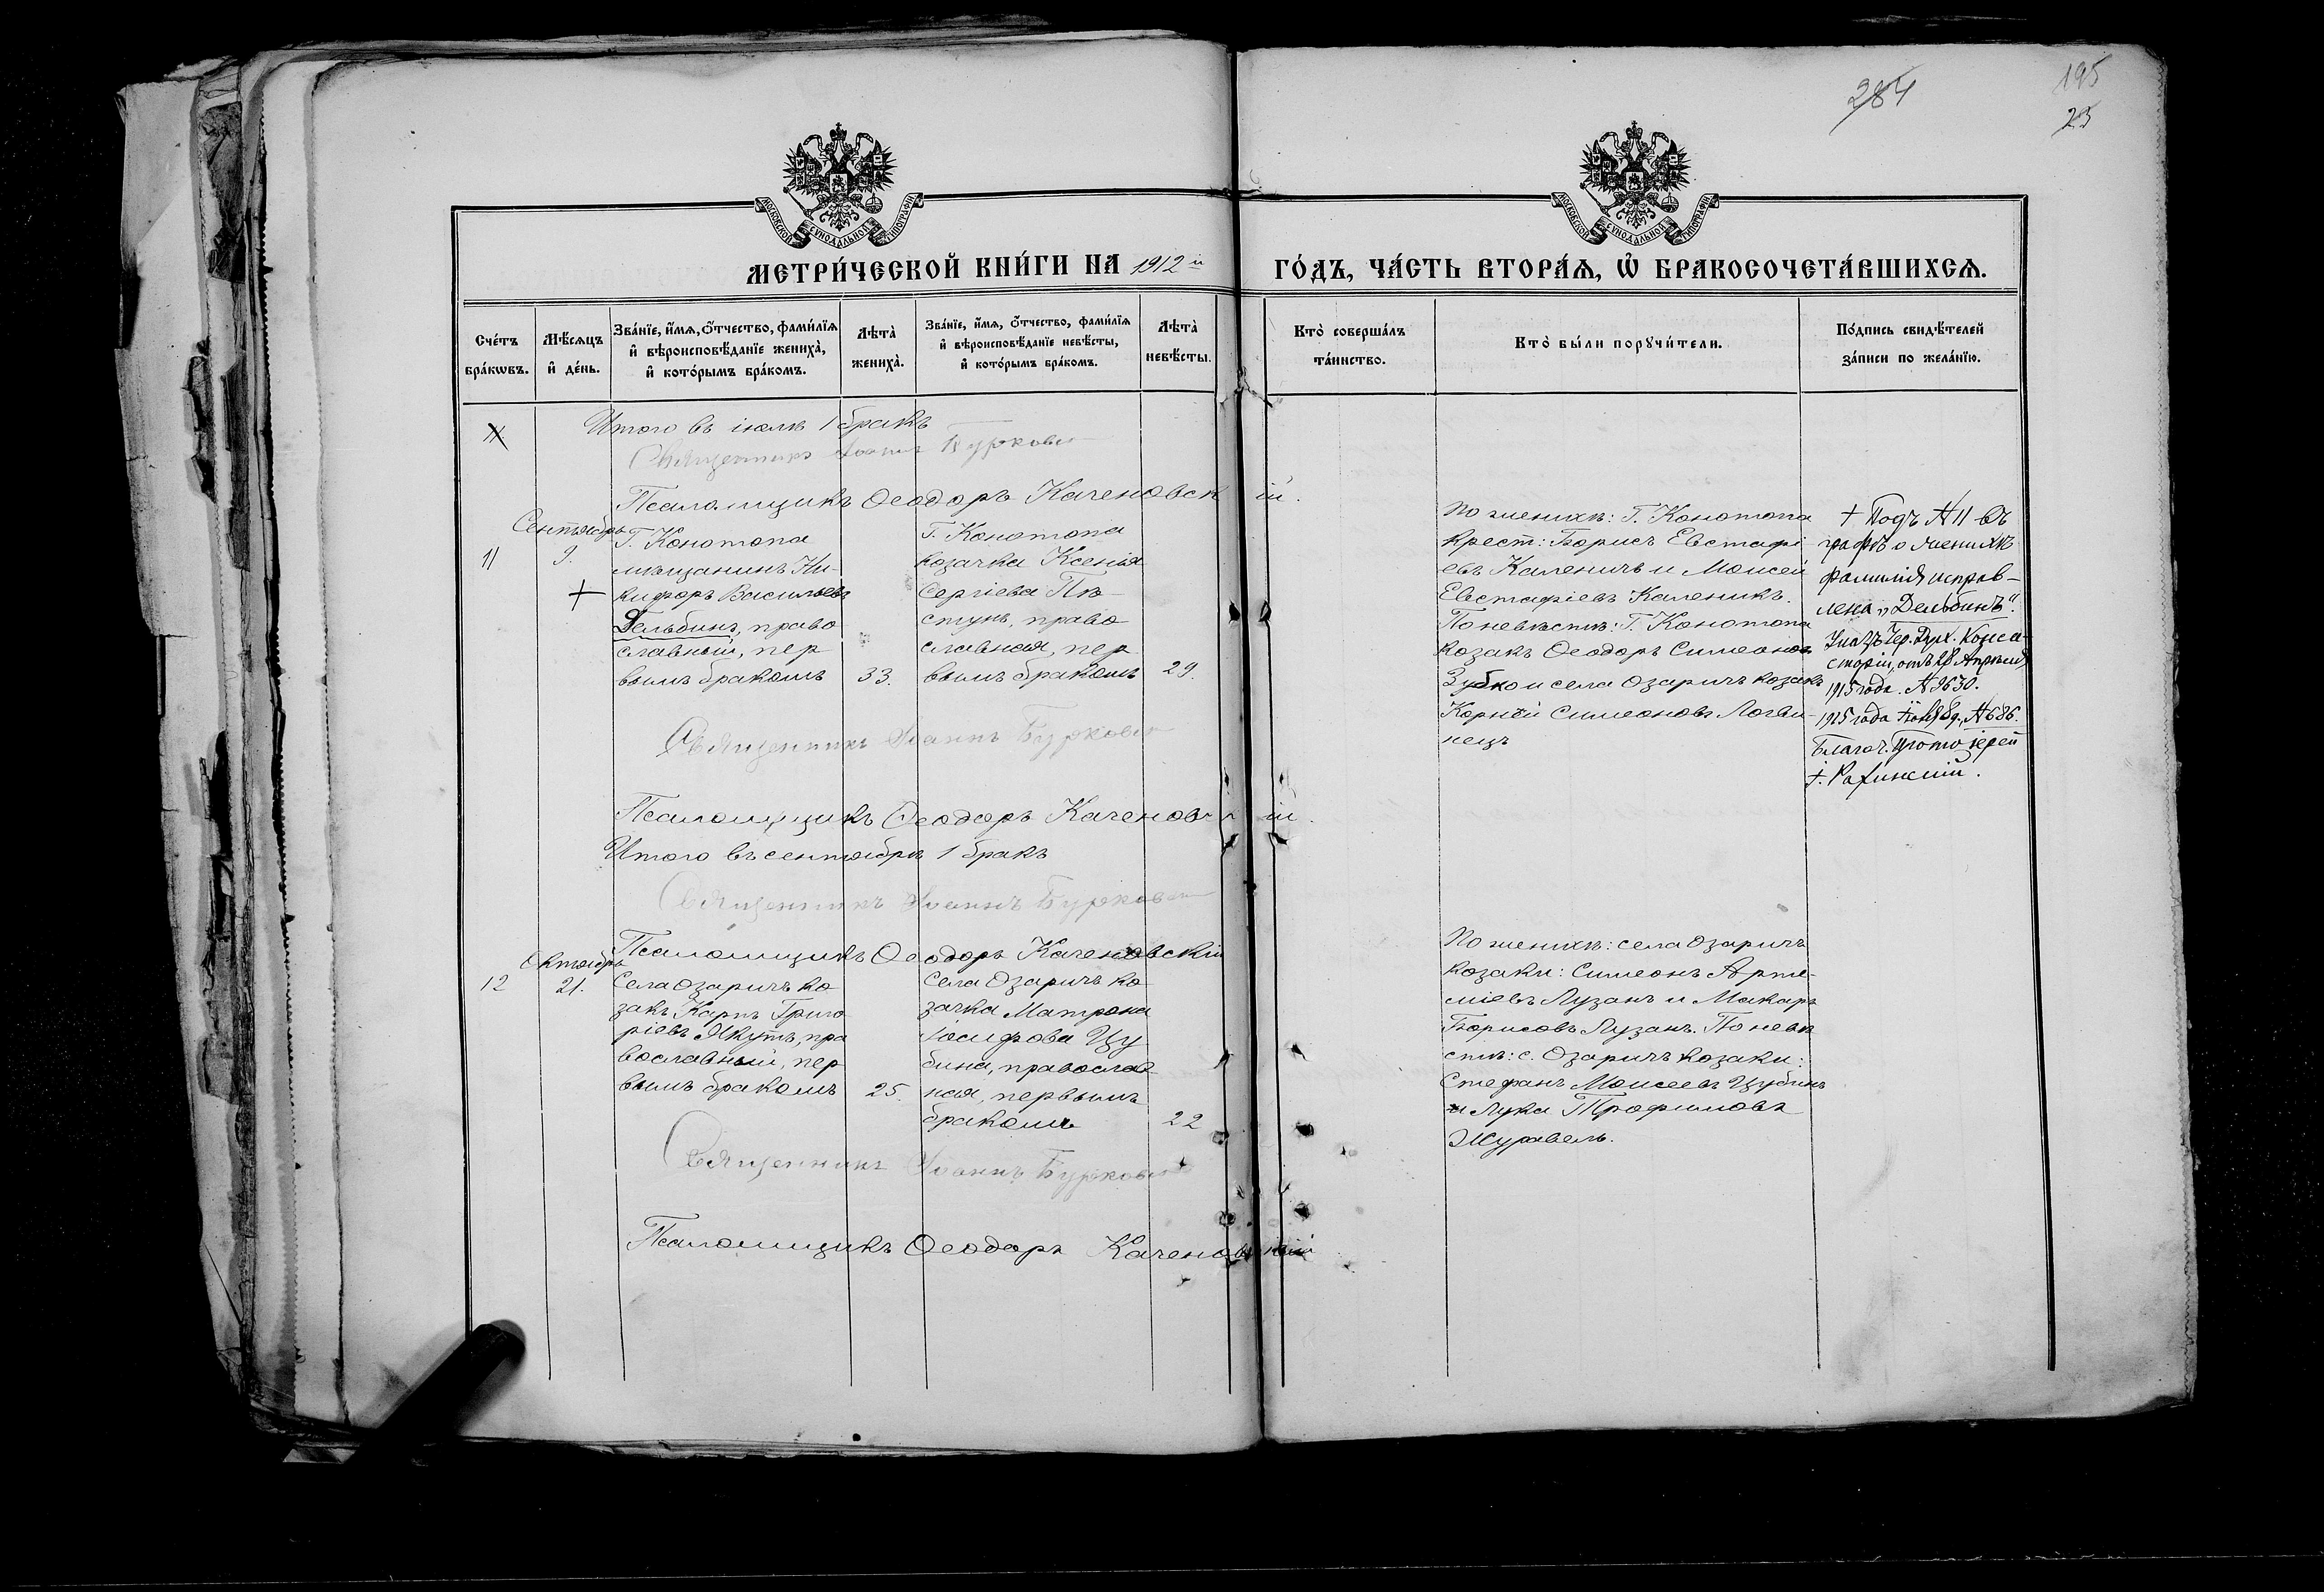 284
195
23
МОСКОВСКОЙ СѴНОДАЛЬНОЙ ТИПОГРАФІИ
МОСКОВСКОЙ СѴНОДАЛЬНОЙ ТИПОГРАФІИ
МЕТРИ́ЧЕСКОЙ КНИ́ГИ НА 1912 й
ГО́ДЪ, ЧА́СТЬ ВТОРА́Ѧ, Ѿ БРАКОСОЧЕТА́ВШИХСѦ.
Сче́тъ
бра́кѡвъ.
Мѣ́сѧцъ
и҆ де́нь.
Зва́нїе, и҆́мѧ, ѻ҆́тчество, фами́лїѧ
и҆ вѣроисповѣ́данїе жениха̀,
и҆ кото́рымъ бра́комъ.
Лѣта̀
жениха̀.
Зва́нїе, и҆́мѧ, ѻ҆́тчество, фами́лїѧ
и҆ вѣроисповѣ́данїе невѣ́сты,
и҆ кото́рымъ бра́комъ.
Лѣта̀
невѣ́сты.
Кто̀ соверша́лъ
та́инство.
Кто̀ бы́ли порꙋчи́тели.
По́дпись свидѣ́телей
за́писи по жела́нїю.
Итого въ іюлѣ 1 бракъ
Священникъ Іоаннъ Бурков
Псаломщикъ Ѳеодоръ Каченовскій.
Сентябрь
11
9.
Г. Конотопа
мѣщанинъ Ни-
кифоръ Васильевъ
Дельбинъ, право
славный, пер
вымъ бракомъ
33.
Г. Конотопа
козачка Ксенія
Сергіева Пѣ
стунъ, право
славная, пер
вымъ бракомъ
29.
По женихѣ: Г. Конотопа
крест: Борисъ Евстафі
евъ Каленичъ и Моисей
Евстафіевъ Каленикъ.
По невѣстѣ: Г. Конотопа
козакъ Ѳеодоръ Симеонов
Зубко и села Озаричъ козакъ
Корній Симеоновъ Логви-
нецъ
+ Подъ № 11 въ
графѣ о женихѣ
фамилія исправ-
лена „Дельбинъ".
Указъ Чер. Дух. Конси-
сторіи, отъ 28 Апрѣля
1915 года. № 9630.
1915 года № 686.
Благоч. Протоіерей
Священникъ Іоаннъ Бурков
Псаломщикъ Ѳеодоръ Каченов ій.
Итого въ сентябрѣ 1 бракъ
Священникъ Іоаннъ Бурков
Псаломщикъ Ѳеодоръ Каченовскій
Октябрь
12
21.
Села Озаричъ ко
закъ Карпъ Григо
ріевъ Якутъ, пра
вославный, пер
вымъ бракомъ
25.
Села Озаричъ ко
зачка Матрона
Іосифова Цу
бина, православ
ная, первымъ
бракомъ
22
По женихѣ: села Озаричъ
козаки: Симеонъ Арте-
міевъ Лузанъ и Макаръ
Борисовъ Лузанъ. По невѣ
стѣ: с. Озаричъ козаки:
Стефанъ Моисеевъ Цубинъ
и Лука Трофимовъ
Журавель.
Священникъ Іоаннъ Бурков
Псаломщикъ Ѳеодоръ Каченовскій